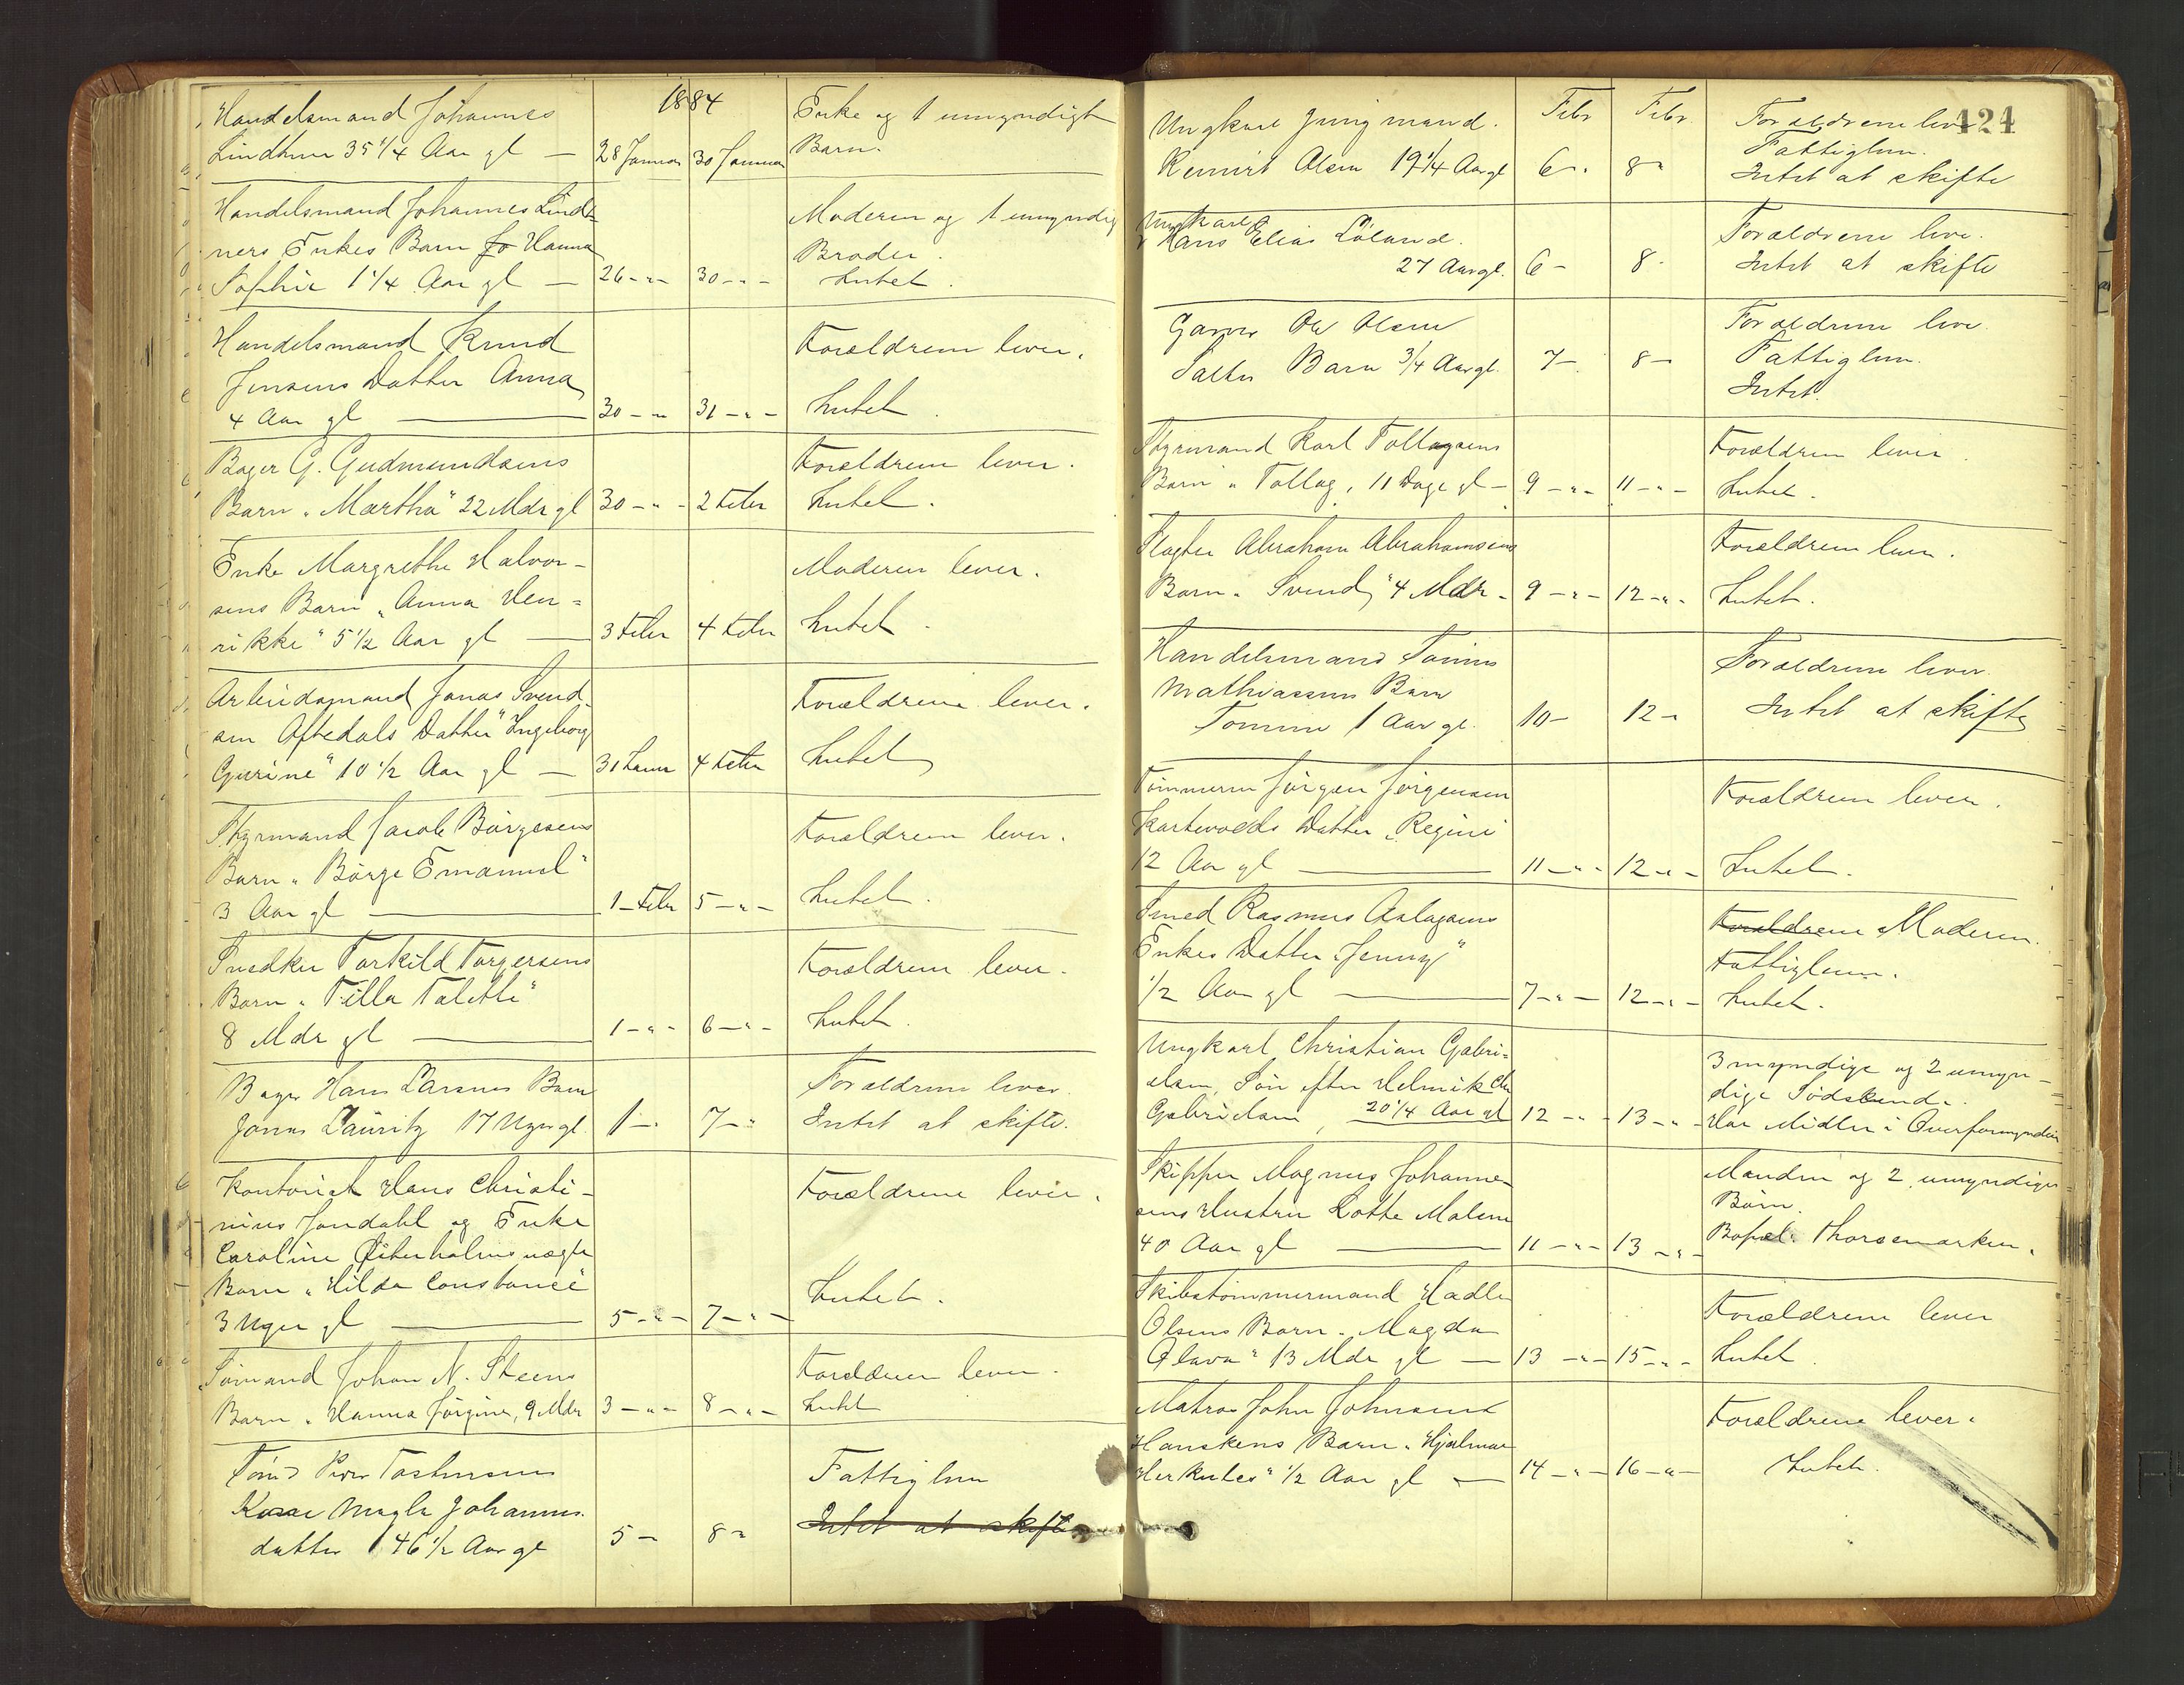 1884
Handelsmand Johannes
Lindtner 35 1/4 Aar gl — 28 Januar 30 Januar
Enke og 1 umyndigt
Barn.
Handelsmand Johannes Lindt-
ners Enkes Barn Jo Hanna
Sophie 1 1/4 Aar gl — 26 -"- 30 -"-
Moderen og 1 umyndig
Broder.
Intet.
Handelsmand Knud
Jensens Datter Anna
4 Aar gl — 30 -"- 31 -"-
Forældrene lever.
Intet.
Bager G. Gudmundsens
Barn „Martha" 22 Mdr gl 30 -"- 2 Febr
Forældrene lever.
Intet.
Enke Margrethe Halvor-
sens Barn „Anna Hen-
rikke" 5 1/2 Aar gl — 3 Febr 4 Febr
Moderen lever.
Intet.
Arbeidsmand Jonas Svend-
sen Aftedals Datter "Ingeborg
Gurine" 10 1/2 Aar gl — 31 Janr 4 Febr
Forældrene lever.
Intet
Styrmand Jacob Börgesens
Barn „Börge Emanuel"
3 Aar gl — 1 Febr 5 -"-
Forældrene lever.
Intet.
Snedker Torkild Torgersens
Barn „Tilla Talette"
8 Mdr gl — 1 -"- 6 -"-
Forældrene lever.
Intet.
Bager Hans Larsens Barn
Jonas Lauritz 17 Uger gl. 1 - 7 -"
Forældrene lever.
Intet at skifte.
Kontorist Hans Christi-
nius Jondahl og Enke
Caroline uægte
Barn „Hilda Constance"
3 Uger gl — 5 -"- 7 -"-
Forældrene lever.
Intet.
Sömand Johan N. Steens
Barn „Hanna Jörgine, 9 Mdr 3 -"- 8 -"-
Forældrene lever.
Intet
Sömd Peder
Kone Johannes
datter 46 1/2 Aar gl 5 - 8 "
Fattiglem
Intet at skifte
124
Febr Febr
Ungkarl Jungmand.
Olsen 19 1/4 Aar gl 6 -. 8 "
Forældrene leve
Fattiglem.
Intet at skifte
Ungkarl
Hans Elias Löland.
27 Aar gl. 6 - 8 -
Forældrene leve.
Intet at skifte
Garver Ole Olsen
Barn 3/4 Aar gl. 7 - 8 -
Forældrene leve.
Fattiglem.
Intet.
Styrmand Karl Tollagsens
Barn „Tollag, 11 Dage gl - 9 -"- 11 -"-
Forældrene lever.
Intet.
Slagter Abraham Abrahamsens
Barn „Svend" 4 Mdr - 9 -"- 12 -"-
Forældrene lever.
Intet.
Handelsmand Tönnes
Mathiassens Barn
Tomine 1 Aar gl. 10 - 12 -
Forældrene lever.
Intet at skifte
Tömmerm Jörgen Jörgensen
Kartevolds Datter „Regine
12 Aar gl — 11 -"- 12 -"-
Forældrene lever.
Intet.
Smed Rasmus Aslagsens
Enkes Datter „Jenny"
1/2 Aar gl — 7 -"- 12 -"-
Forældrene Moderen.
Fattiglem.
Intet.
Ungkarl Christian Gabri-
elsen, Sön efter Helmik Chr
Gabrielsen, 20 1/4 Aar gl 12 -"- 13 -"-
3 myndige og 2 umyn-
dige Södskende.
Har Midler i Overformynderi
Skipper Magnus Johanne-
sens Hustru Lotte Malene
40 Aar gl — 11 -"- 13 -"-
Manden og 2 umyndige
Börn.
Bopæl: Thorsemarken.
Skibstömmermand Hadle
Olsens Barn „Magda
Olava" 13 Mdr gl — 13 -"- 15 -"-
Forældrene lever
Intet.
Matros John Johnsens
Hanskens Barn „Hjalmar
Herkules" 1/2 Aar gl — 14 -"- 16 -"-
Forældrene lever.
Intet.